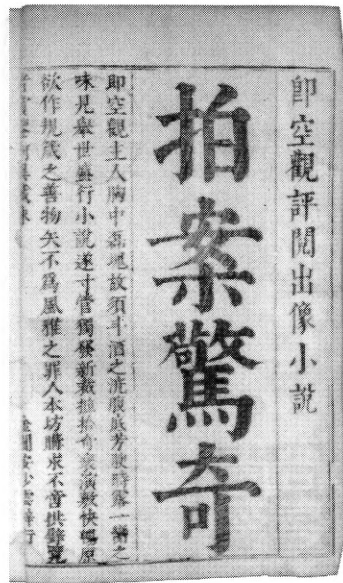 即空觀評閱出像小說
拍案驚奇
即空觀主人胸中磊塊故須斗酒之澆腹底芳腴時露一臠之
味見舉世盛行小說遂寸管獨發新裁摭拾奇演敷快暢原
欲作規箴之善物矢不爲風雅之罪人本坊購求不啻供璧覽
者賞鑒何異藏珠 金閶安少雲梓行